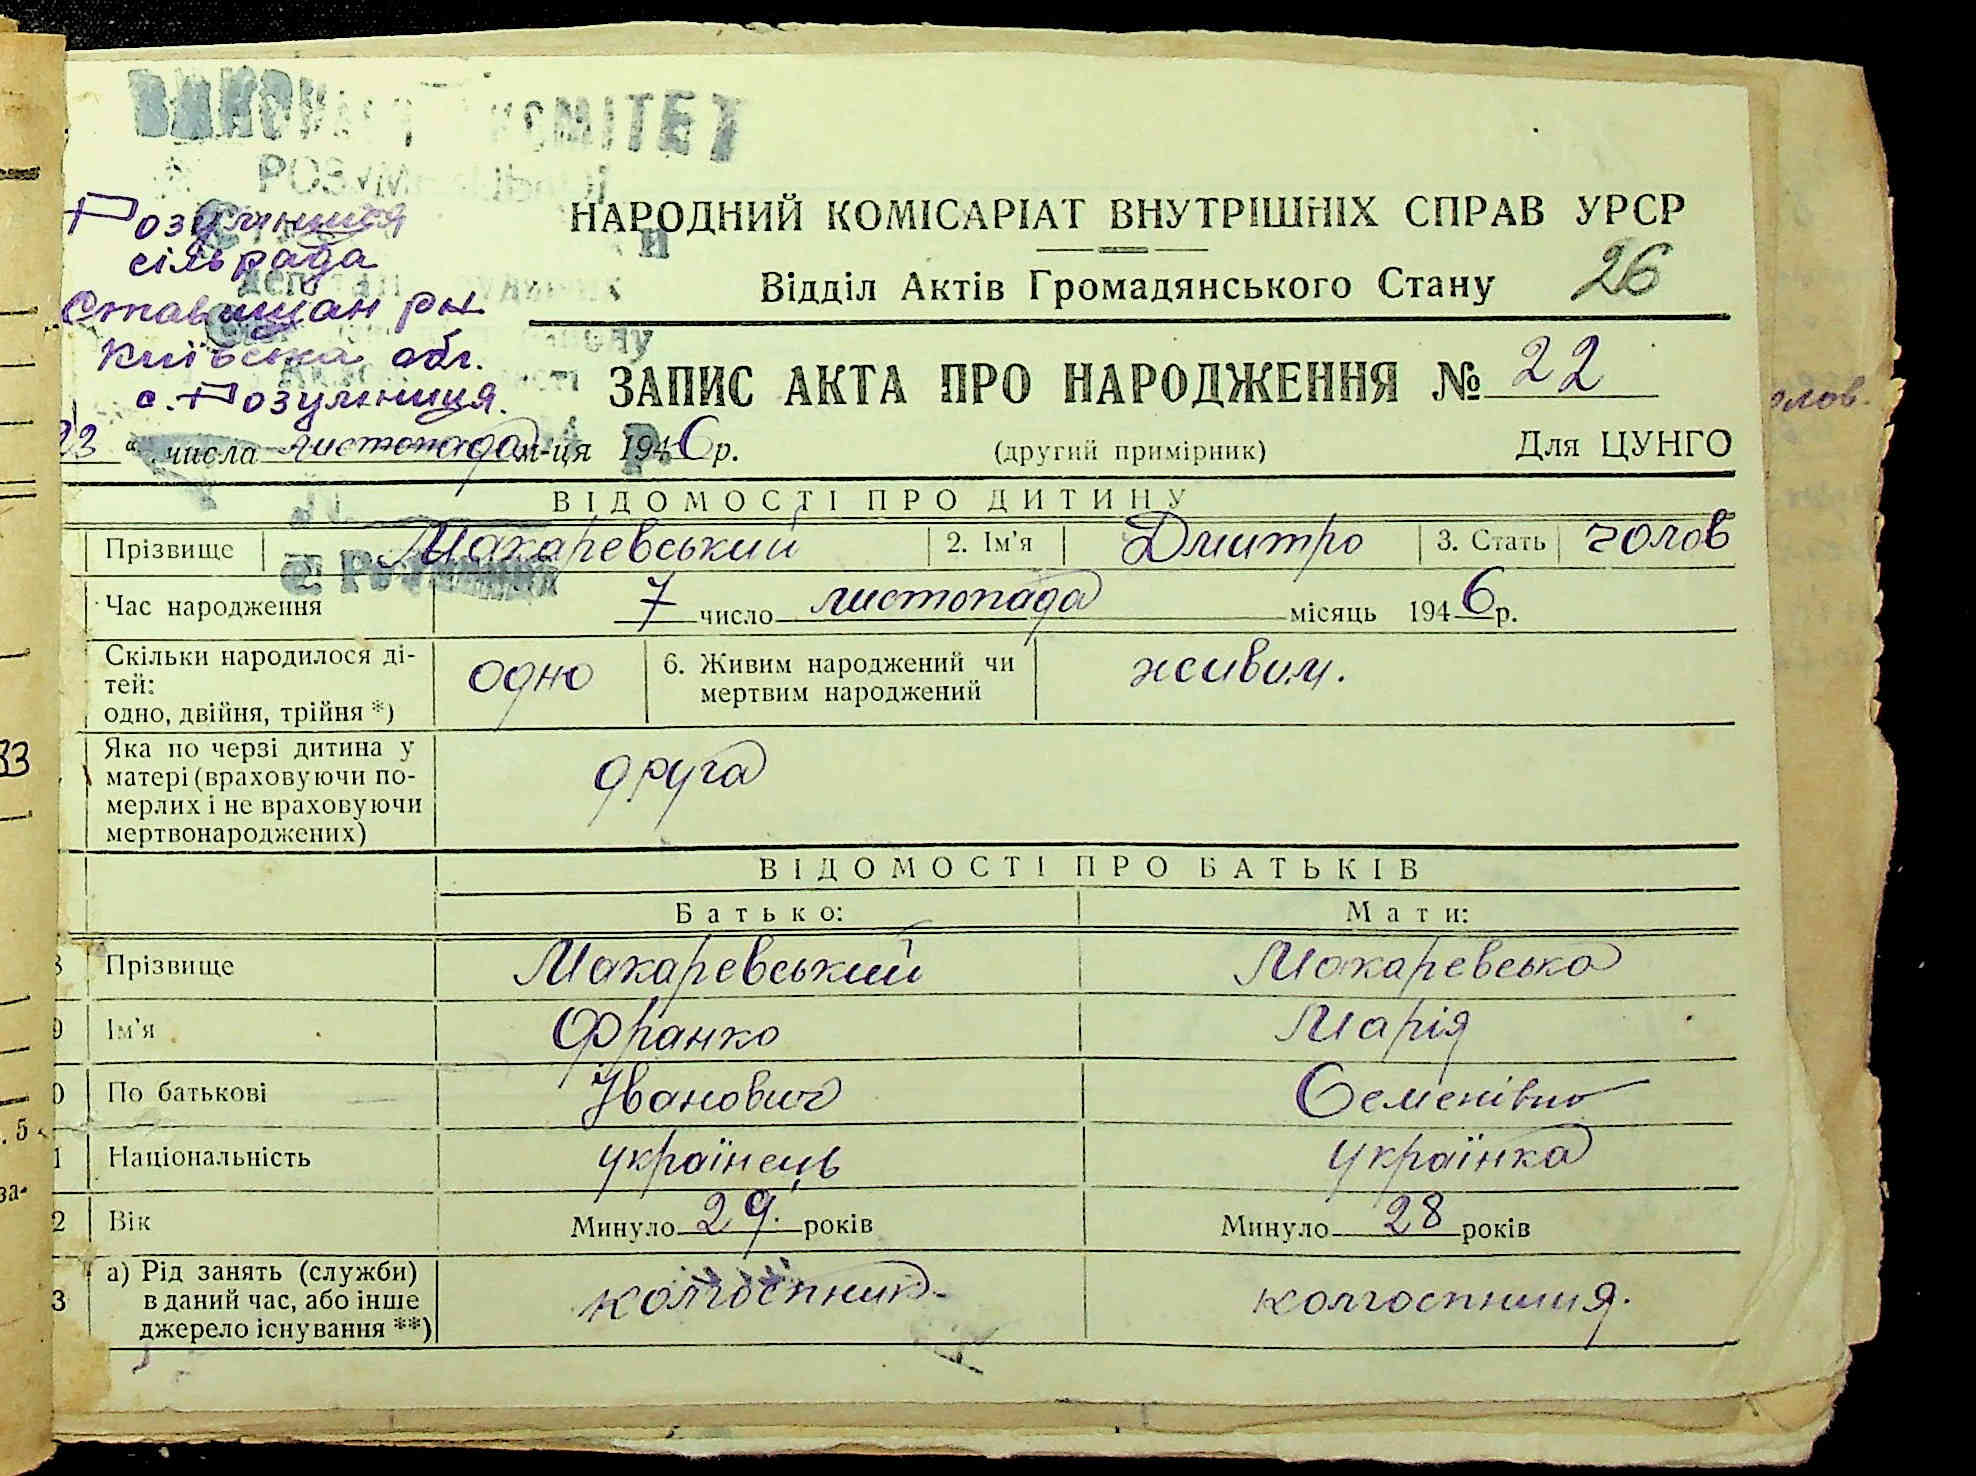 КОМІТЕТ
Розумниця
сільрада
Ставищан рн
Київська обл.
с. Розумниця.
НАРОДНИЙ КОМІСАРІАТ ВНУТРІШНІХ СПРАВ УРСР
Відділ Актів Громадянського Стану 26
ЗАПИС АКТА ПРО НАРОДЖЕННЯ № 22
23 " числа листопада м-ця 1946 р. (другий примірник) Для ЦУНГО
ВІДОМОСТІ ПРО ДИТИНУ
Прізвище Макаревський 2. Ім'я Дмитро 3. Стать чолов
Час народження 7 число листопада місяць 1946 р.
Скільки народилося ді-
тей:
одно, двійня, трійня *) одно 6. Живим народжений чи
мертвим народжений живим.
Яка по черзі дитина у
матері (враховуючи по-
мерлих і не враховуючи
мертвонароджених) друга
ВІДОМОСТІ ПРО БАТЬКІВ
Батько: Мати:
Прізвище Макаревський Макаревська
Ім'я Франко Марія
По батькові Іванович Семенівна
Національність українець українка
2 Вік Минуло 29. років Минуло 28 років
3 а) Рід занять (служби)
в даний час, або інше
джерело існування **) колгоспник колгоспниця.
33
. 5
за-
олов.